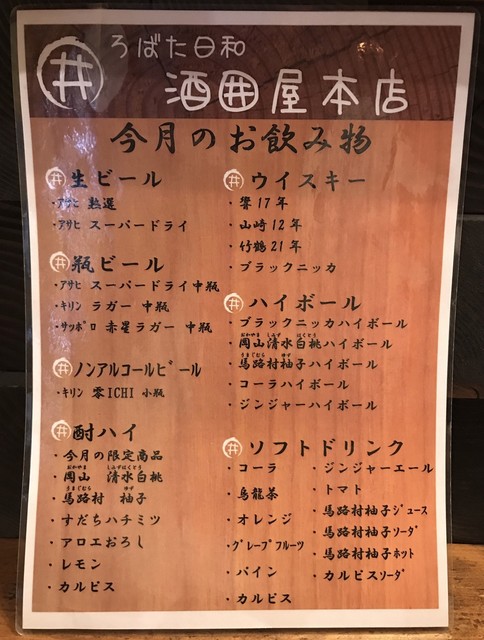 井 ろばた日和
酒囲屋本店
今月のお飲み物
井 生ビール
・アサヒ 熟選
・アサヒ スーパードライ
井 瓶ビール
・アサヒ スーパードライ中瓶
・キリン ラガー 中瓶
・サッポロ 赤星ラガー 中瓶
井 ノンアルコールビール
・キリン 零ICHI 小瓶
井 酎ハイ
・今月の限定商品
おかやま しみずはくとう
・岡山 清水白桃
うまじむら ゆず
・馬路村 柚子
・すだちハチミツ
・アロエおろし
・レモン
・カルピス
井 ウイスキー
・響17年
・山崎12年
・竹鶴21年
・ブラックニッカ
井 ハイボール
・ブラックニッカハイボール
おかやま しみず はくとう
・岡山清水白桃ハイボール
うまじむら ゆず
・馬路村柚子ハイボール
・コーラハイボール
・ジンジャーハイボール
井 ソフトドリンク
・コーラ
・烏龍茶
・オレンジ
・グレープフルーツ
・パイン
・カルピス
・ジンジャーエール
・トマト
・馬路村柚子ジュース
・馬路村柚子ソーダ
・馬路村柚子ホット
・カルピスソーダ